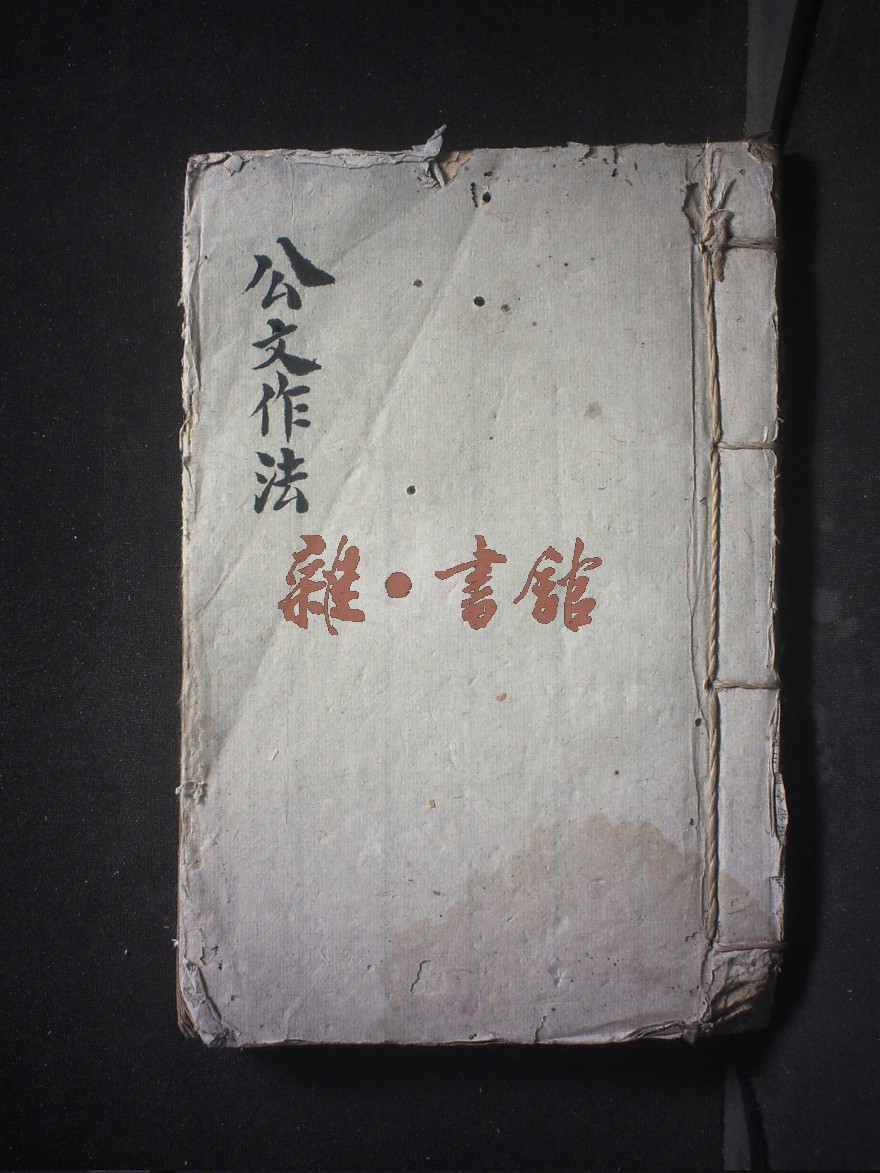 公文作法
雜·書館